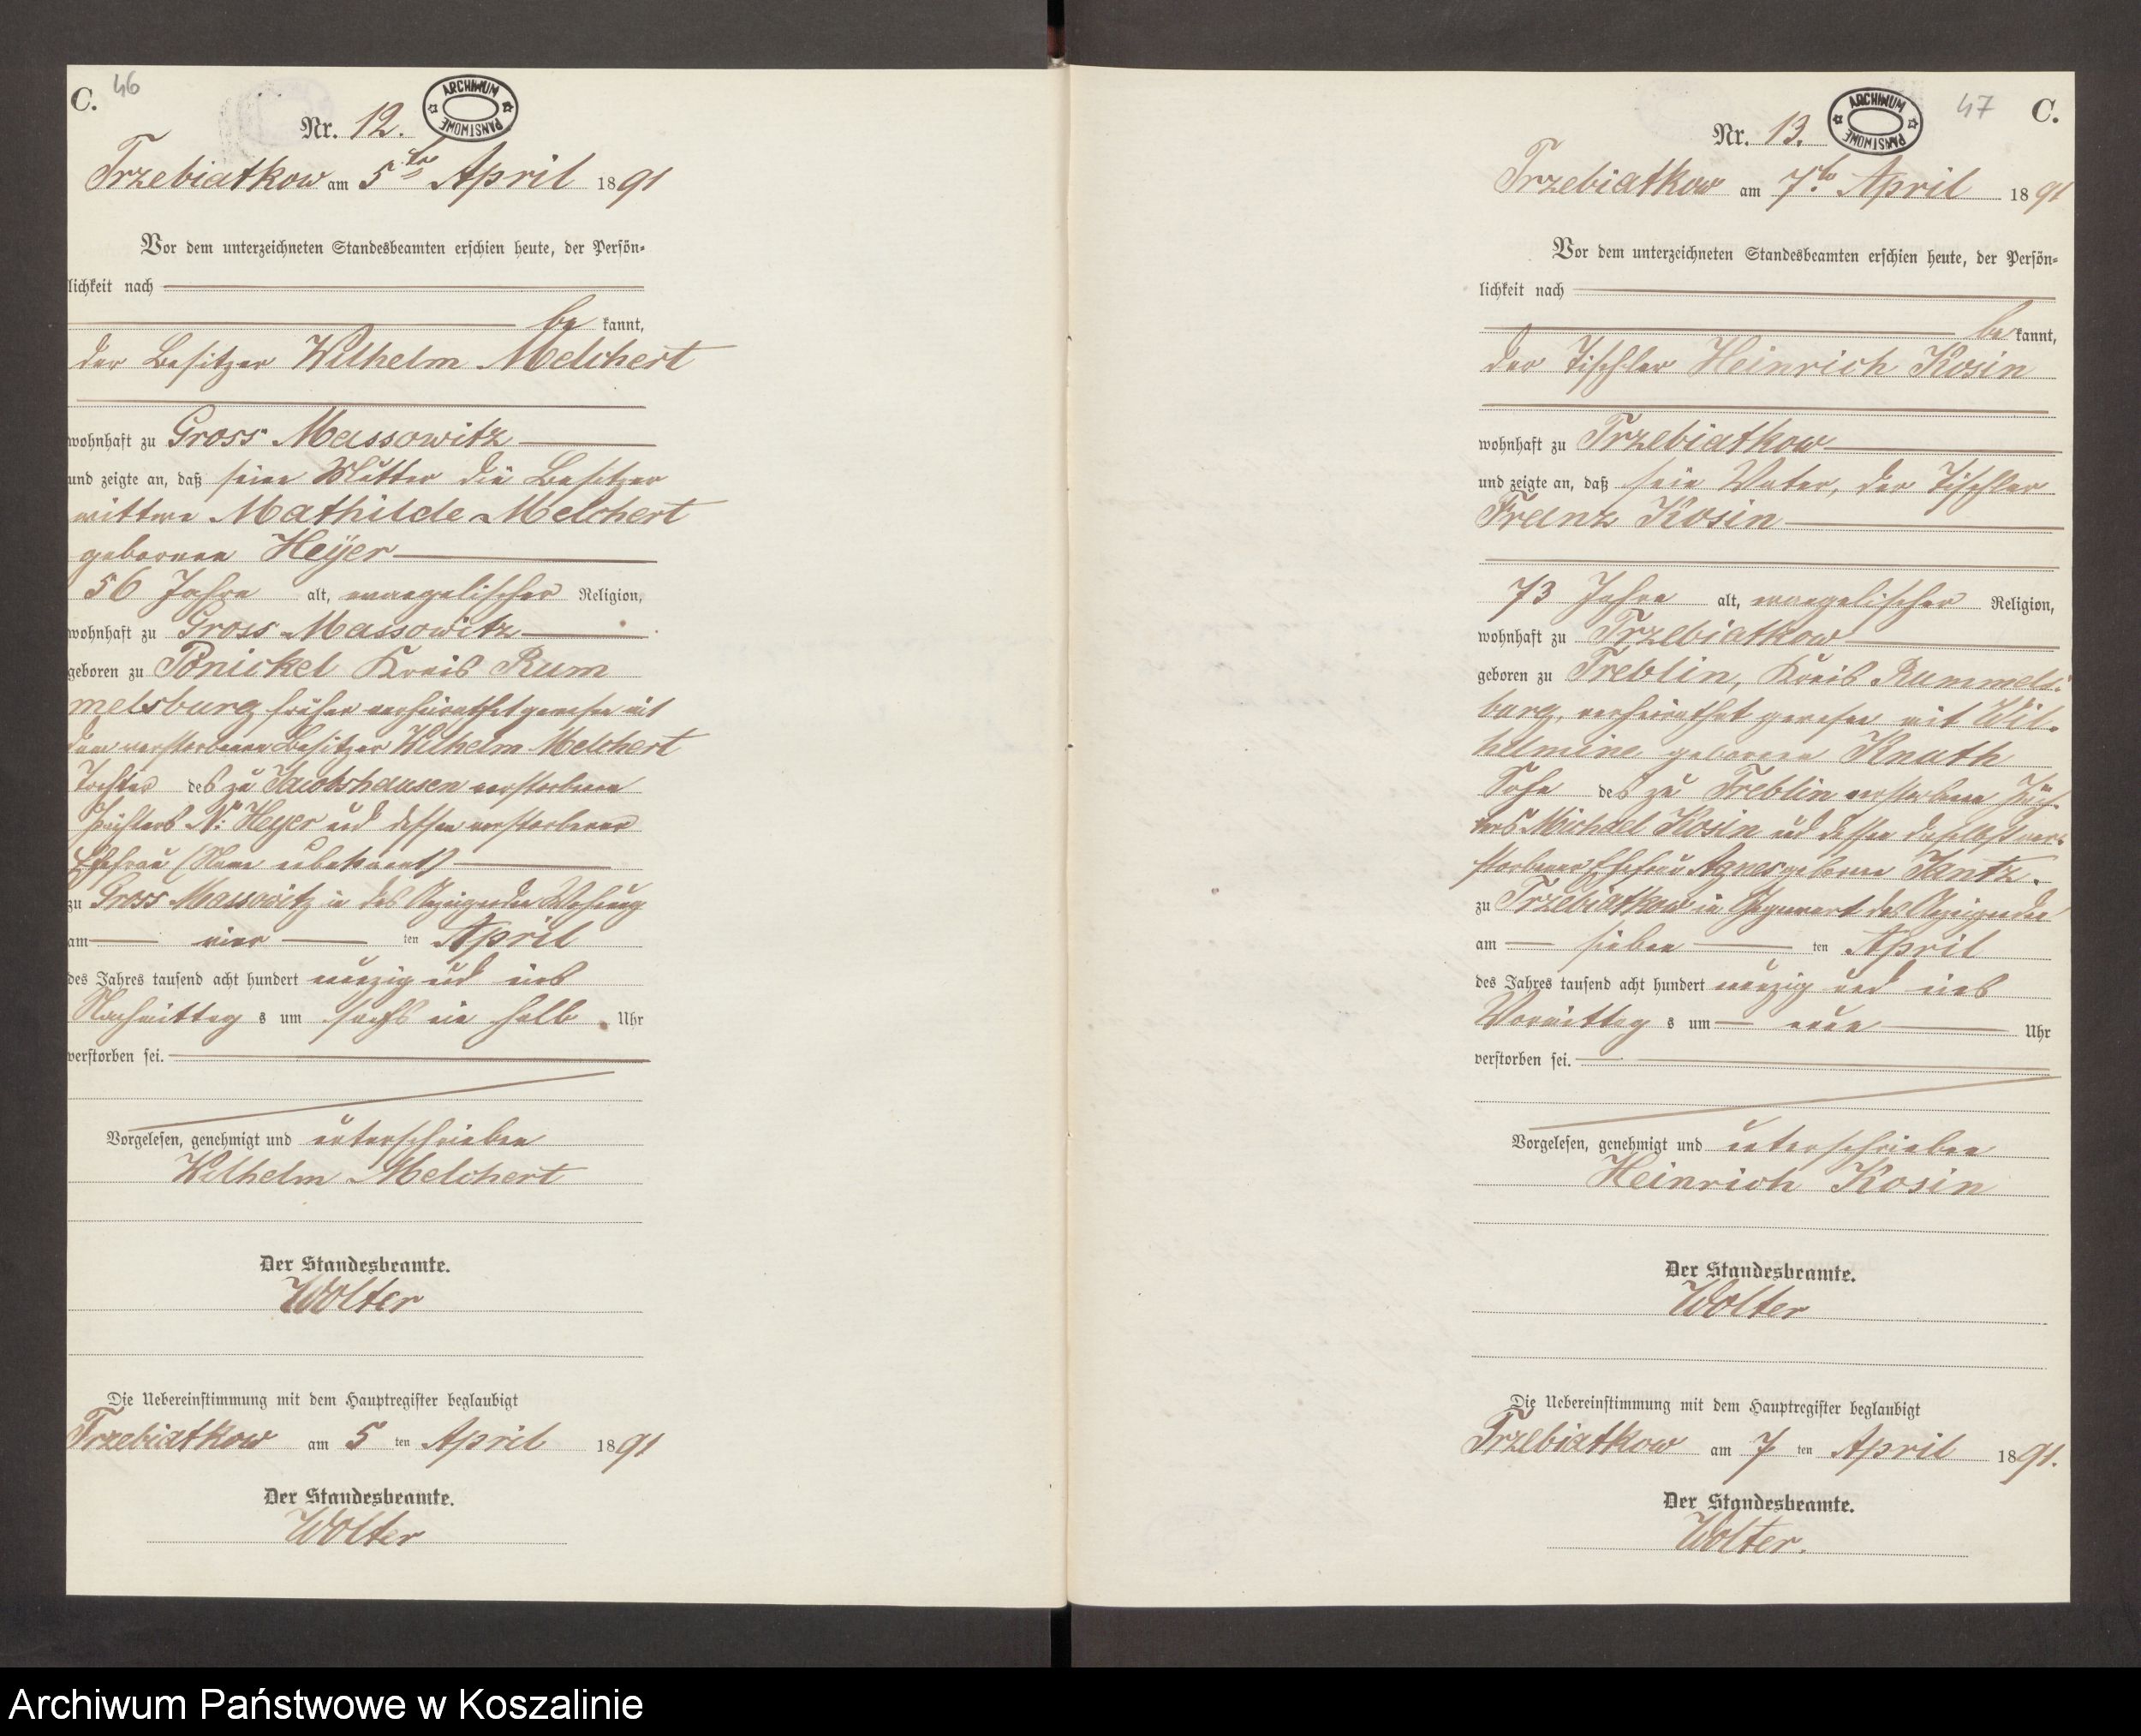 C. 46
ARCHIWUM PAŃSTWOWE
Nr. 12.
Trzebiatkow am 5ten April 1891
Vor dem unterzeichneten Standesbeamten erschien heute, der Persön-
lichkeit nach
be kannt,
der Besitzer Wilhelm Melchert
wohnhaft zu Gross Massowitz
und zeigte an, daß seine Mutter die Besitzer
wittwe Mathilde Melchert
geborene Heyer
56 Jahre alt, evangelischer Religion,
wohnhaft zu Gross Massowitz
geboren zu Ponickel Kreis Rum
melsburg früher verheirathet gewesen mit
dem verstorbenen Besitzer Wilhelm Melchert
Tochter des zu Jacobshausen verstorbenen
Pächters N: Heyer und dessen verstorbener
Ehefrau (Name unbekannt)
zu Gross Massowitz in des Anzeigenden Wohnung
am vier ten April
des Jahres tausend acht hundert neunzig und eins
Nachmittag s um sechs ein halb Uhr
verstorben sei.
Vorgelesen, genehmigt und unterschrieben
Wilhelm Melchert
Der Standesbeamte.
Wolter
Die Uebereinstimmung mit dem Hauptregister beglaubigt
Trzebiatkow am 5 ten April 1891
Der Standesbeamte.
Wolter
47 C.
ARCHIWUM PAŃSTWOWE
Nr. 13.
Trzebiatkow am 7ten April 1891
Vor dem unterzeichneten Standesbeamten erschien heute, der Persön-
lichkeit nach
be kannt,
der Tischler Heinrich Kosin
wohnhaft zu Trzebiatkow
und zeigte an, daß sein Vater, der Tischler
Franz Kosin
73 Jahre alt, evangelischer Religion,
wohnhaft zu Trzebiatkow
geboren zu Treblin, Kreis Rummels-
burg, verheirathet gewesen mit Wil-
helmine geborene Knuth
Sohn des zu Treblin verstorbenen
Michael Kosin und dessen daselbst ver-
storbener Ehefrau Agnes geborene Jantz.
zu Trzebiatkow in Gegenwart des Anzeigenden
am sieben ten April
des Jahres tausend acht hundert neunzig und eins
Vormittag s um neun Uhr
verstorben sei.
Vorgelesen, genehmigt und unterschrieben
Heinrich Kosin
Der Standesbeamte.
Wolter
Die Uebereinstimmung mit dem Hauptregister beglaubigt
Trzebiatkow am 7 ten April 1891.
Der Standesbeamte.
Wolter.
Archiwum Państwowe w Koszalinie